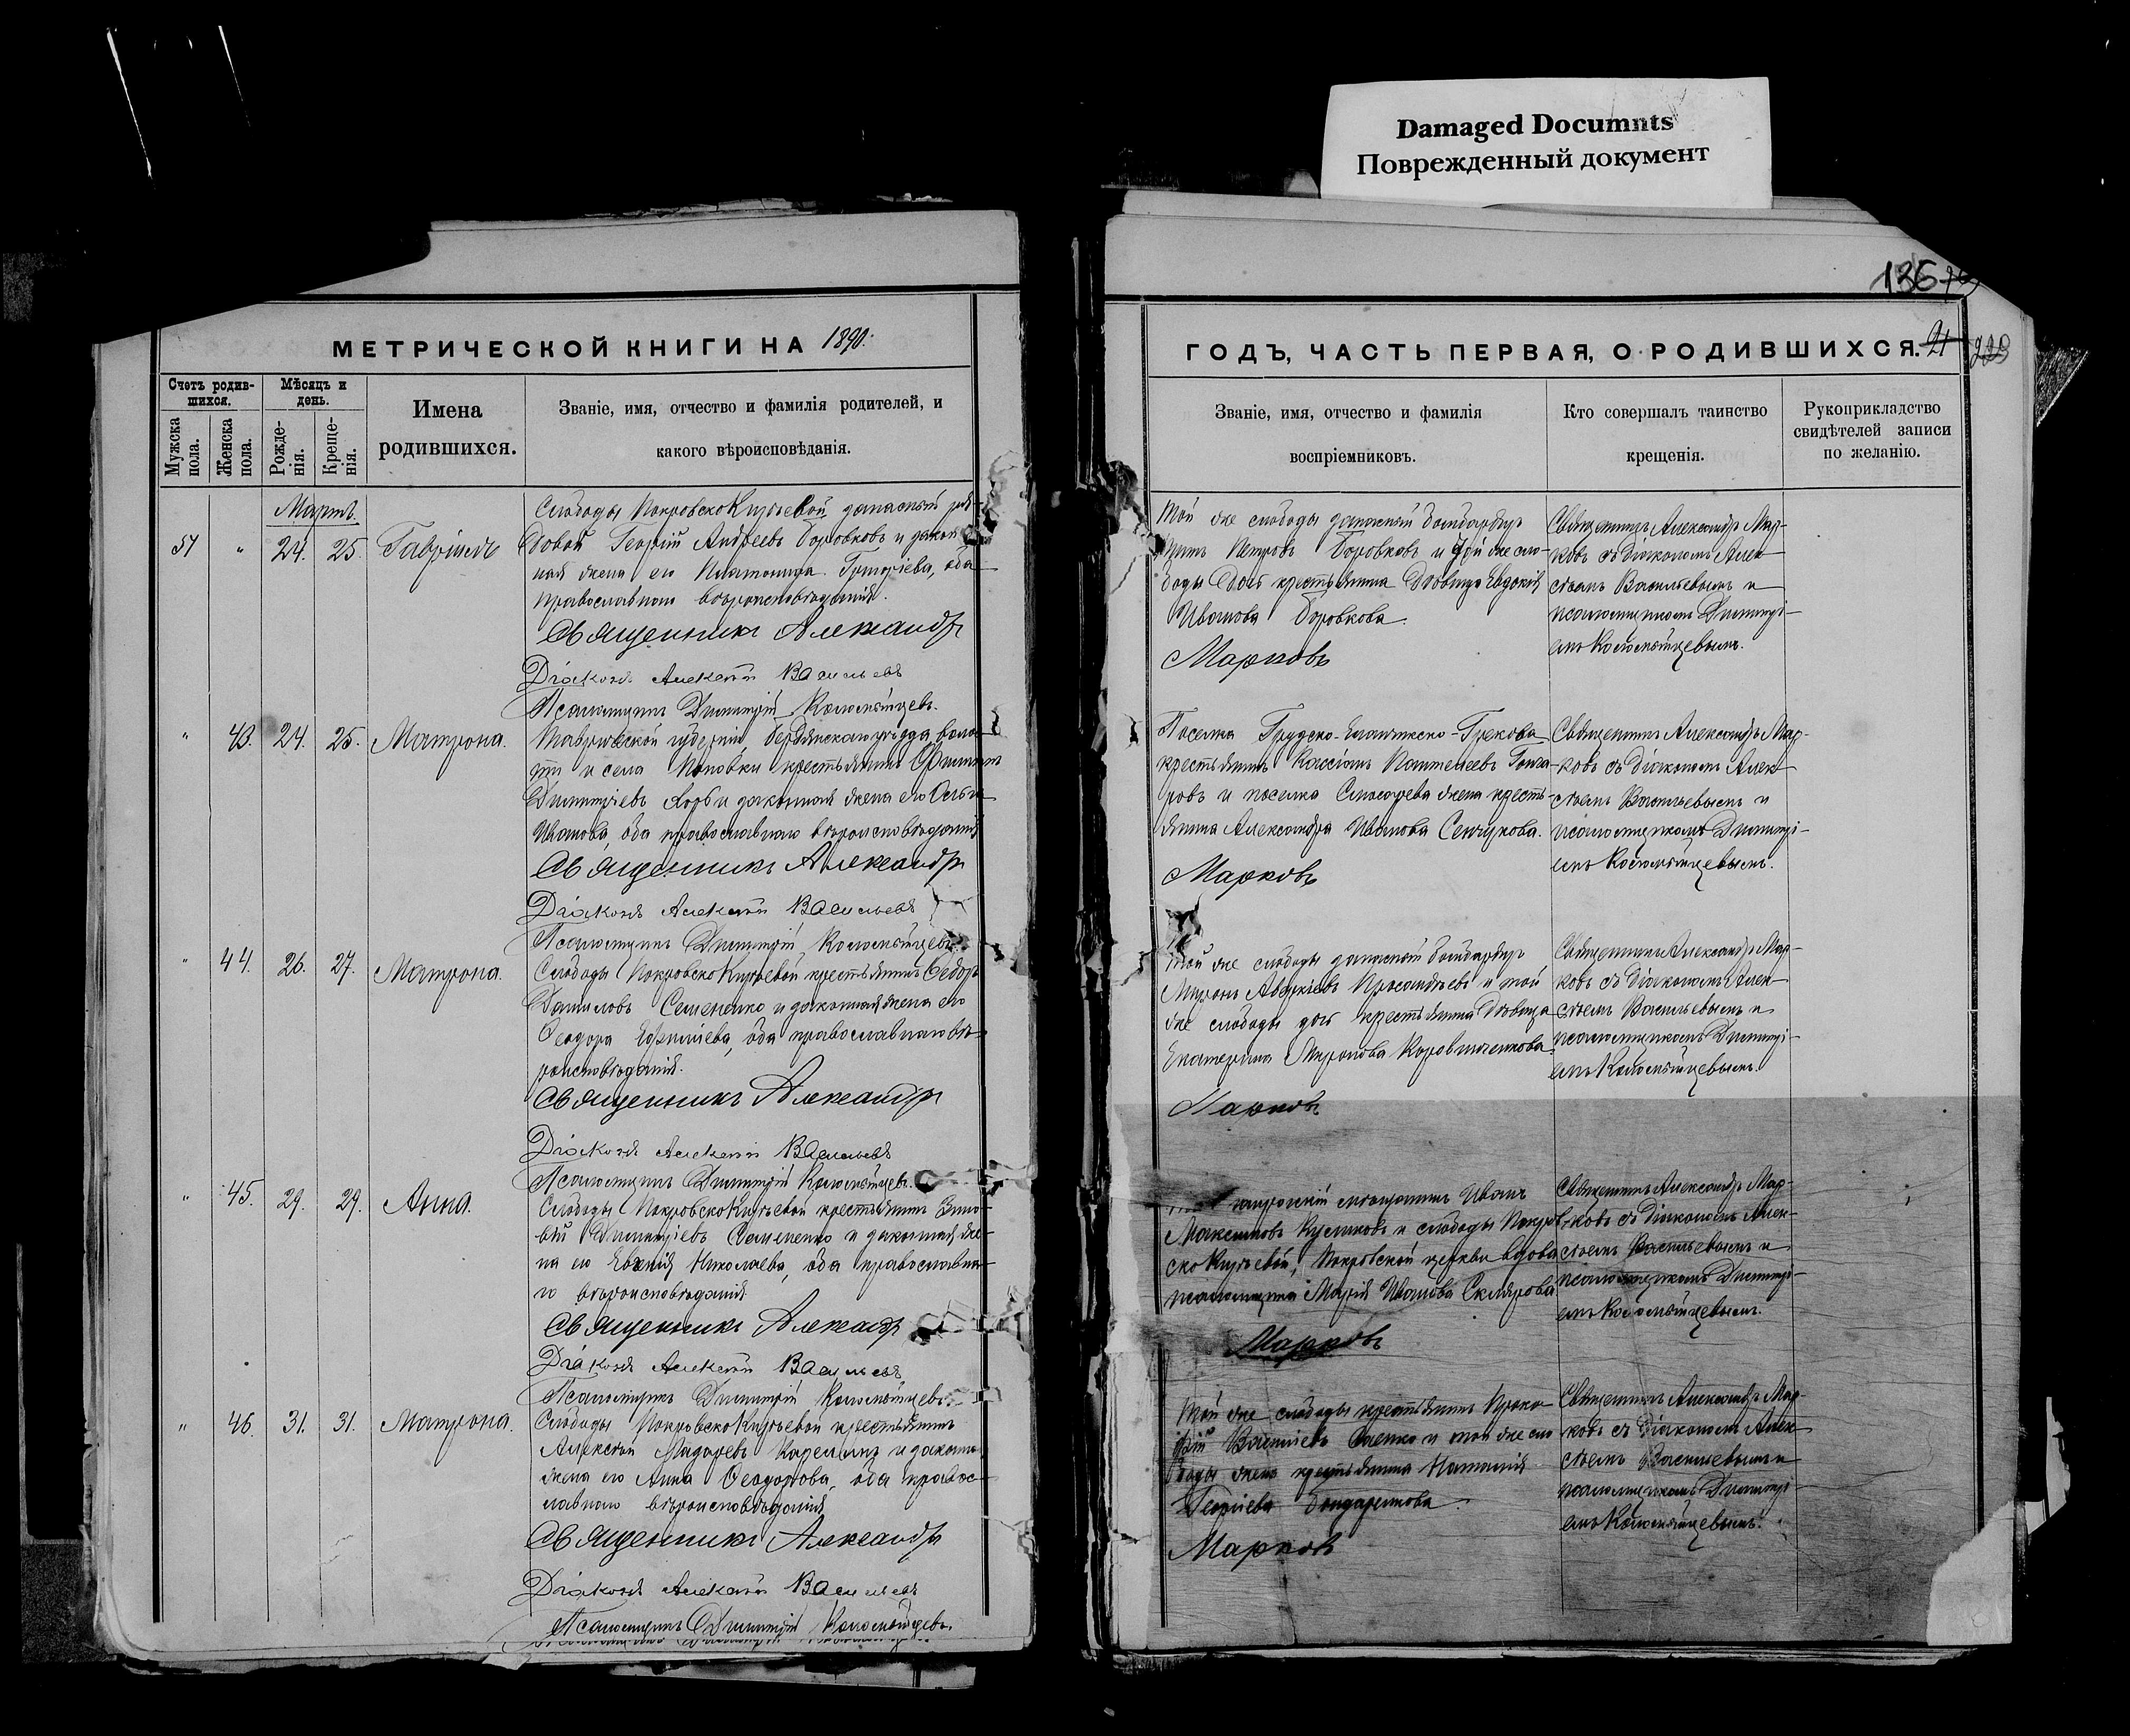 Damaged Documnts
Поврежденный документ
136
МЕТРИЧЕСКОЙ КНИГИ НА 1890.
Счетъ родив-
шихся.
Мѣсяцъ и
день.
Мужска
пола.
Женска
пола.
Рожде-
нія.
Креще-
нія.
Имена
родившихся.
Званіе, имя, отчество и фамилія родителей, и
какого вѣроисповѣданія.
Мартъ.
51 " 24. 25. Гавріилъ
Слободы ПокровскоКирѣевой запасный ря-
довой Георгій Андреевъ Боровковъ и закон-
ная жена его Платонида Григоріева, оба
православнаго вѣроисповѣданія.
Священникъ Александръ
Діаконъ Алексѣй Васильевъ
Псаломщикъ Димитрій Коломѣйцевъ.
" 43. 24. 25. Матрона.
Таврической губерніи, бердянскаго уѣзда, воло-
сти и села Поповки крестьянинъ
Димитріевъ и законная жена его Ольга
Иванова, оба православнаго вѣроисповѣданія
Священникъ Александръ
Діаконъ Алексѣй Васильевъ
Псаломщикъ Димитрій Коломѣйцевъ.
" 44. 26. 27. Матрона.
Слободы ПокровскоКирѣевой крестьянинъ Ѳедоръ
Даниловъ Семененко и законная жена его
Ѳеодора Ефиміева, оба православнаго вѣ-
роисповѣданія.
Священникъ Александръ
Діаконъ Алексѣй Васильевъ
Псаломщикъ Димитрій Коломѣйцевъ.
" 45. 29. 29. Анна.
Слободы ПокровскоКирѣевой крестьянинъ Зино-
вій Димитріевъ Семененко и законная же-
на его Евгенія Николаева, оба православна-
го вѣроисповѣданія
Священникъ Александръ
Діаконъ Алексѣй Васильевъ
Псаломщикъ Димитрій Коломѣйцевъ.
" 46. 31. 31. Матрона.
Слободы ПокровскоКирѣевой крестьянинъ
Алексѣй и законн.
жена его Анна Ѳеодорова, оба правос-
лавнаго вѣроисповѣданія
Священникъ Александръ
Діаконъ Алексѣй Васильевъ
Псаломщикъ Димитрій Коломѣйцевъ.
ГОДЪ, ЧАСТЬ ПЕРВАЯ, О РОДИВШИХСЯ. 21
Званіе, имя, отчество и фамилія
воспріемниковъ.
Кто совершалъ таинство
крещенія.
Рукоприкладство
свидѣтелей записи
по желанію.
Той же слободы запасный бомбардиръ
Петровъ Боровковъ и той же сло-
боды дочь крестьянина дѣвица Евдокія
Иванова Боровкова.
Марковъ
Священникъ Александръ Мар-
ковъ съ діакономъ Алек-
сѣемъ Васильевымъ и
псаломщикомъ Димитрі-
емъ Коломѣйцевымъ.
Поселка Грудско-Еланчикско-Грекова
крестьянинъ Кассіанъ Пантелеевъ Гонча-
ровъ и поселка Слюсарева жена кресть-
янина Александра Иванова Сенчукова.
Марковъ
Священникъ Александръ Мар-
ковъ съ діакономъ Алек-
сѣемъ Васильевымъ и
псаломщикомъ Димитрі-
емъ Коломѣйцевымъ.
Той же слободы запасный бомбардиръ
Миронъ и той
же слободы дочь крестьянина дѣвица
Екатерина Миронова
Марковъ
Священникъ Александръ Мар-
ковъ съ діакономъ Алек-
сѣемъ Васильевымъ и
псаломщикомъ Димитрі-
емъ Коломѣйцевымъ.
мѣщанинъ Иванъ
Максимовъ Куликовъ и слободы Покров-
скоКирѣевой, Покровской церкви вдова
псаломщика Марія Иванова Склярова
Марковъ
Священникъ Александръ Мар-
ковъ съ діакономъ Алек-
сѣемъ Васильевымъ и
псаломщикомъ Димитрі-
емъ Коломѣйцевымъ.
Той же слободы крестьянинъ Проко-
фій Василіевъ и той же сло
боды жена крестьянина Наталія
Георгіева Бондаренкова.
Марковъ
Священникъ Александръ Мар-
ковъ съ діакономъ Алек-
сѣемъ Васильевымъ и
псаломщикомъ Димитрі-
емъ Коломѣйцевымъ.